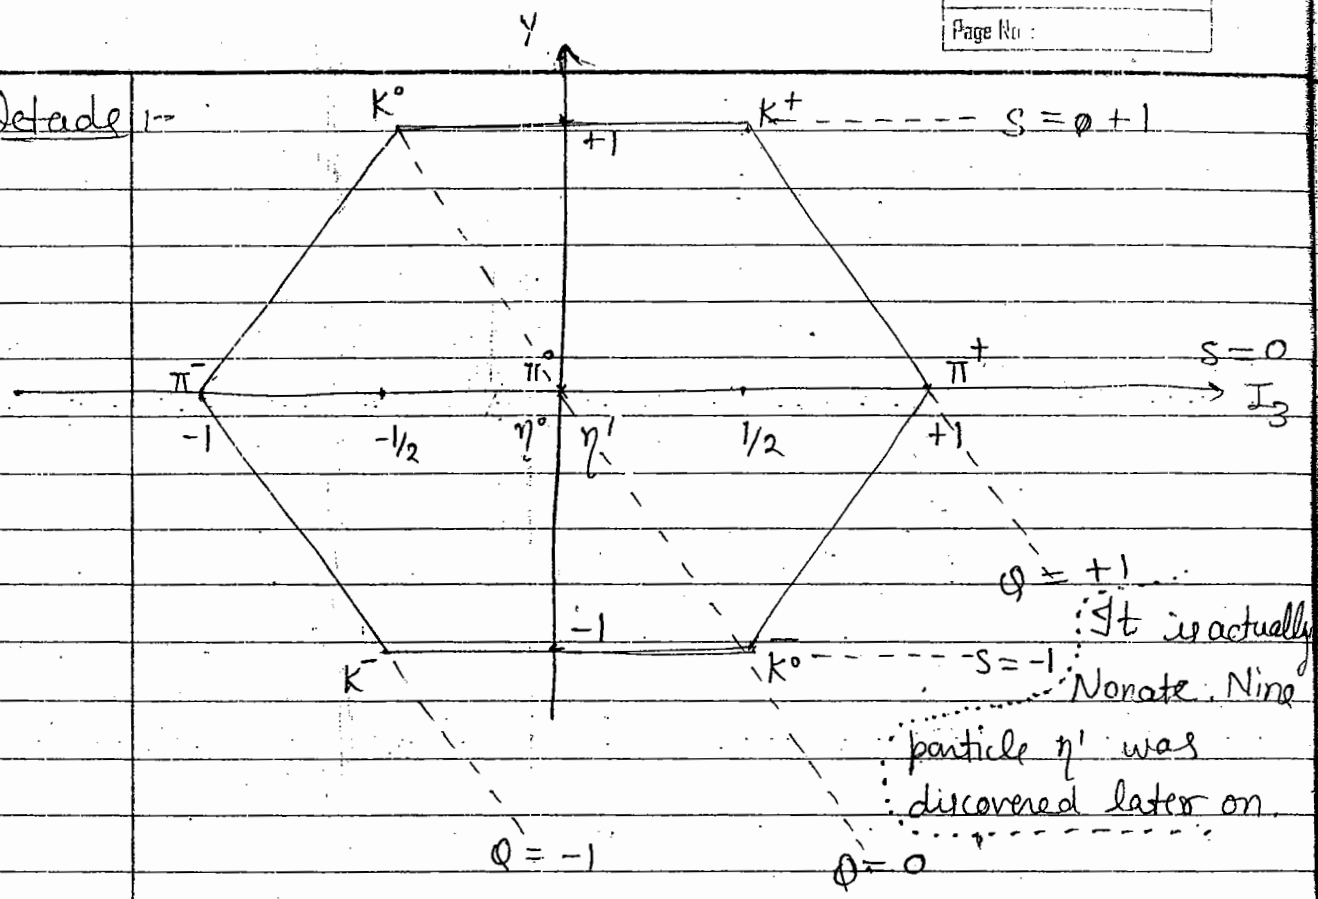 Page No :
Y
Octade :-
K⁰
K⁺
S = +1
+1
S = 0
π⁻
π⁰
π⁺
I₃
-1
-1/2
η⁰
η'
1/2
+1
Q = +1
-1
It is actually
K⁻
K̅⁰
S = -1
Nonate. Nine
particle η' was
discovered later on.
Q = -1
Q = 0